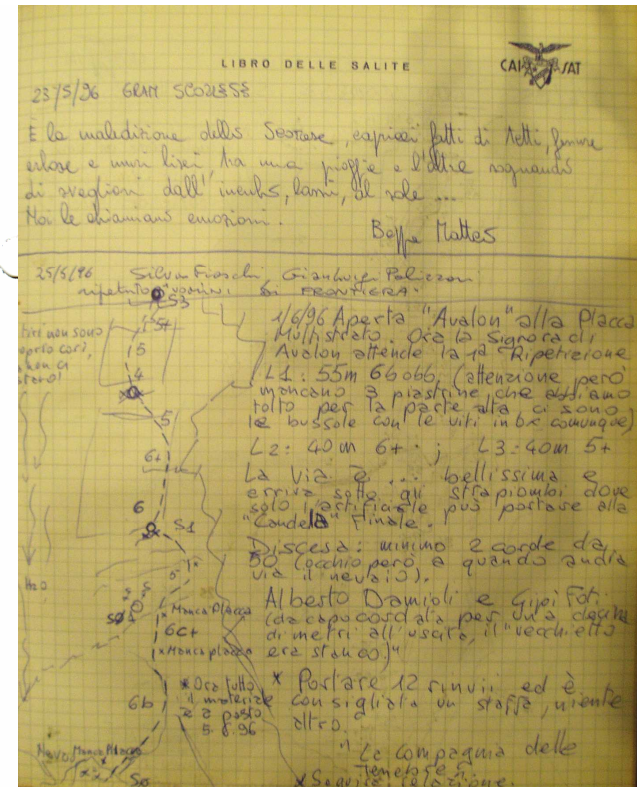 LIBRO DELLE SALITE
CAI SAT
23/5/96 GRAN SCORESE
È la maledizione dello Scorese, capricci fatti di tetti, fessure
erbose e muri lisci, tra una pioggia e l'altra sognando
di svegliarsi dall'incubo, al sole ...
Noi le chiamiamo emozioni.
Beppe
25/5/96 Silvia Gianluigi
ripetuto "UOMINI DI FRONTIERA"
S3
5+
5
4
5
6+
6
S1
tiri non sono
proprio così,
H2O
x Manca Placca
6c+
x Manca placca
6b
* Ora tutto
il materiale
è a posto
5.8.96
Neve Manca Placca
So
1/6/96 Aperta "Avalon" alla Placca
Multistrato. Ora la Signora di
Avalon attende la 1ª Ripetizione
L1: 55m 6b obb. (attenzione però
mancano 3 piastrine che abbiamo
tolto per la parte alta ci sono
le bussole con le viti inbx comunque)
L2: 40m 6+ ; L3: 40m 5+
La via è ... bellissima e
arriva sotto gli strapiombi dove
solo l'artificiale può portare alla
"Candela" finale.
Discesa: minimo 2 corde da
50 (occhio però a quando andrà
via il nevaio).
Alberto Damioli e Gipi Foti
(da capocordata per una decina
di metri all'uscita, il "vecchietto
era stanco)"
* Portare 12 rinvii ed è
consigliata un staffa, niente
altro.
" La compagnia delle
Tenebre".
* Seguirà relazione.